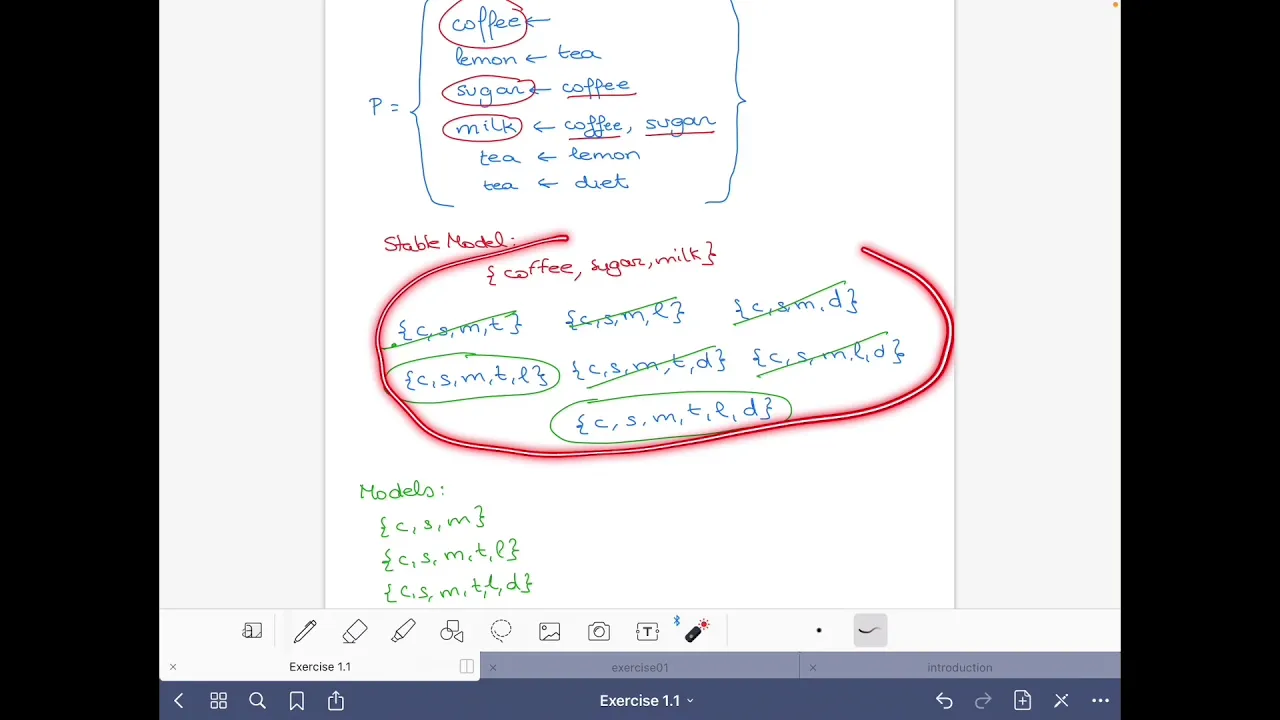 coffee ←
lemon ← tea
sugar ← coffee
P =
milk ← coffee, sugar
tea ← lemon
tea ← diet
Stable Model:
{coffee, sugar, milk}
{c,s,m,t} {c,s,m,l} {c,s,m,d}
{c,s,m,t,l} {c,s,m,t,d} {c,s,m,l,d}
{c,s,m,t,l,d}
Models:
{c,s,m}
{c,s,m,t,l}
{c,s,m,t,l,d}
T
× Exercise 1.1 × exercise01 × introduction
Exercise 1.1